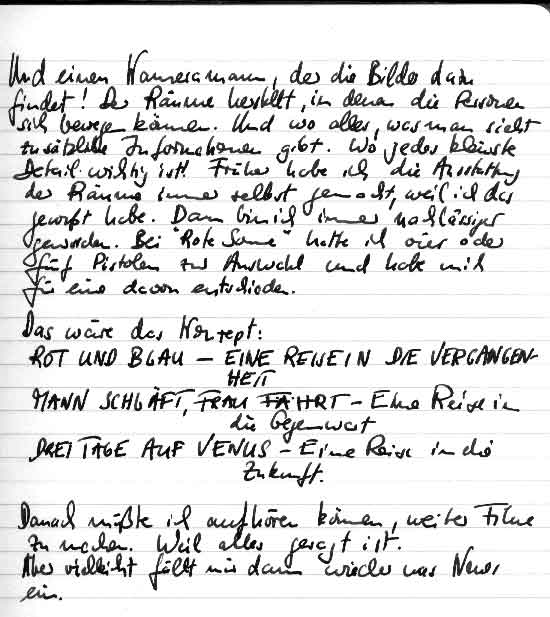 Und einen Kameramann, der die Bilder dazu
findet! Der Räume herstellt, in denen die Personen
sich bewegen können. Und wo alles, was man sieht
zusätzliche Informationen gibt. Wo jedes kleinste
Detail wichtig ist! Früher habe ich die Ausstattung
der Räume immer selbst gemacht, weil ich das
gewußt habe. Dann bin ich immer nachlässiger
geworden. Bei "Rote Sonne" hatte ich vier oder
fünf Pistolen zur Auswahl und habe mich
für eine davon entschieden.
Das wäre das Konzept:
ROT UND BLAU – EINE REISE IN DIE VERGANGEN-
HEIT
MANN SCHLÄFT, FRAU FÄHRT – Eine Reise in
die Gegenwart
DREI TAGE AUF VENUS – Eine Reise in die
Zukunft.
Danach müßte ich aufhören können, weiter Filme
zu machen. Weil alles gesagt ist.
Aber vielleicht fällt mir dann wieder was Neues
ein.